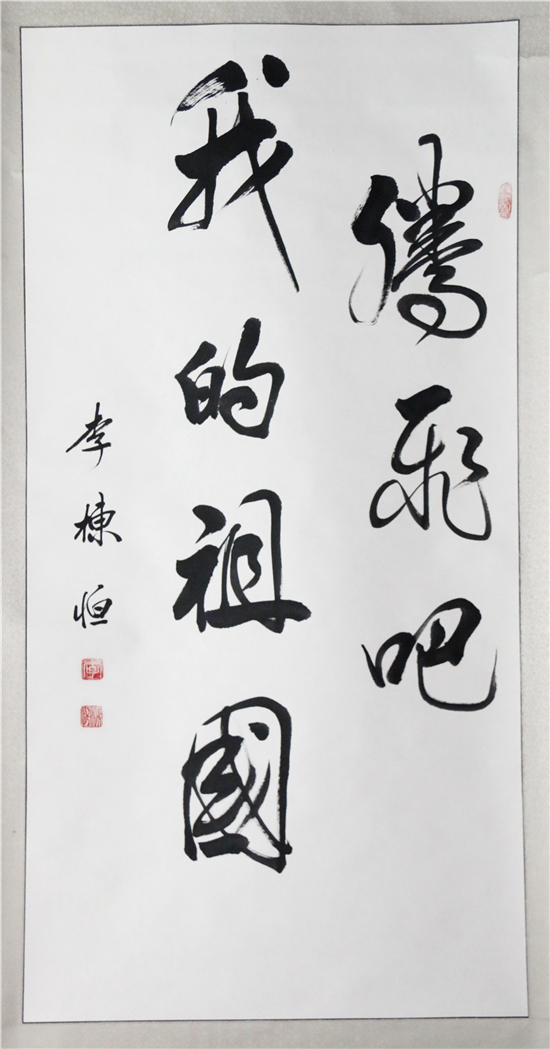 騰飛吧
我的祖國
李棟恒